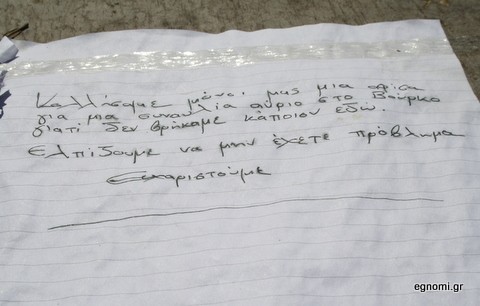 Κολλήσαμε μόνοι μας μια αφίσα
για μια συναυλία αύριο στο Βούρκο
γιατί δεν βρήκαμε κάποιον εδώ.
Ελπίζουμε να μην έχετε πρόβλημα
Ευχαριστούμε
egnomi.gr